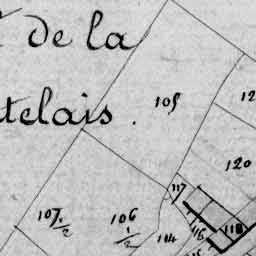 de la
telais.
105
12
120
117
107 1/2
106 1/2
104
116
118